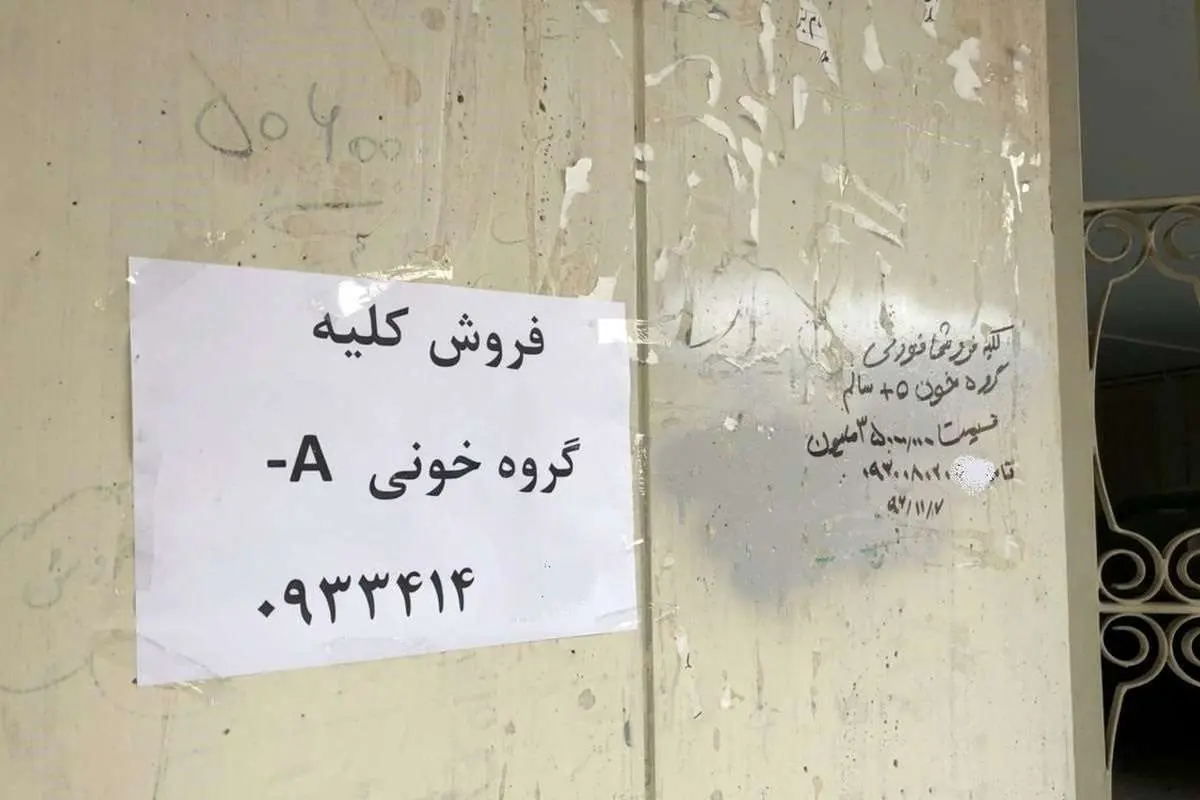 ۵۰۶۰۰
فروش کلیه
گروه خونی A-
۰۹۳۳۴۱۴
کلیه فروشی فوری
گروه خون O+ سالم
قیمت ۳۵٫۰۰۰/۰۰۰ میلیون
۰۹۲۰۰۸۰۲۰
۹۶/۱۱/۷